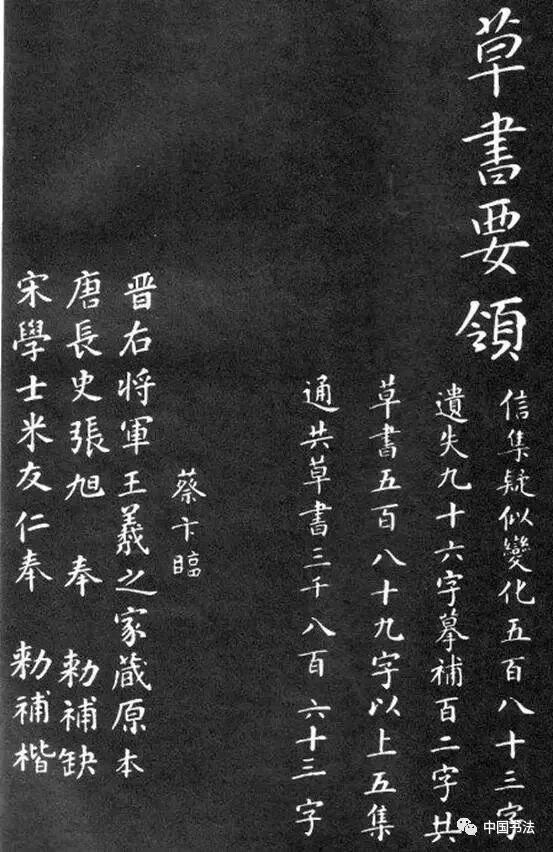 草書要領
信集疑似變化五百八十三字
遺失九十六字摹補百二字共
草書五百八十九字以上五集
通共草書三千八百六十三字
蔡卞臨
晋右将軍王羲之家蔵原本
唐長史張旭奉勑補缺
宋學士米友仁奉勑補楷
中国书法